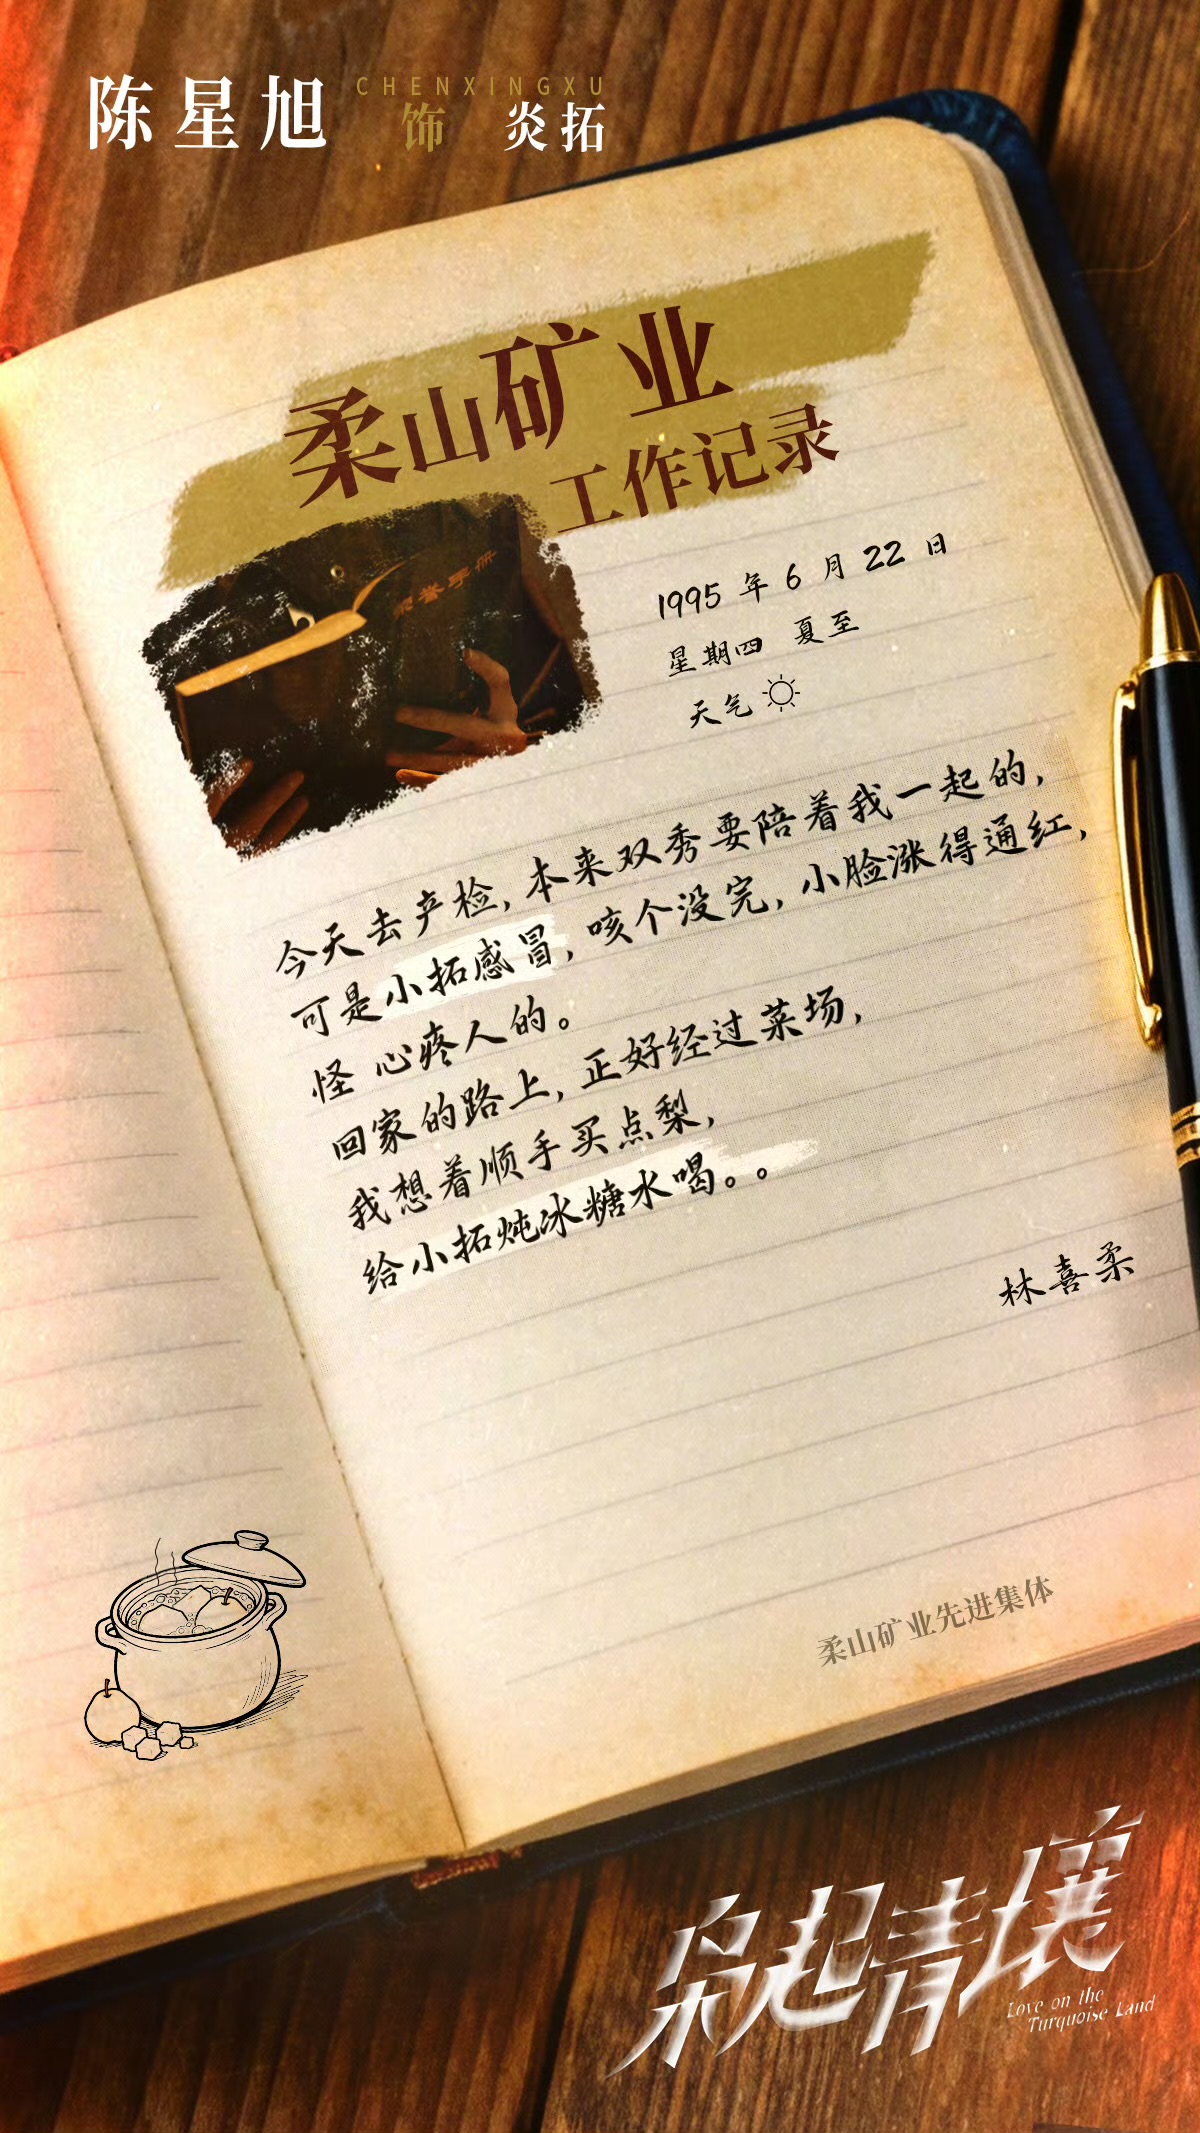 陈星旭
CHENXINGXU
饰 炎拓
柔山矿业
工作记录
荣誉手册
1995 年 6 月 22 日
星期四 夏至
天气
今天去产检,本来双秀要陪着我一起的,
可是小拓感冒,咳个没完,小脸涨得通红,
怪 心疼人的。
回家的路上,正好经过菜场,
我想着顺手买点梨,
给小拓炖冰糖水喝。。
林喜柔
柔山矿业先进集体
枭起青壤
Love on the
Turquoise Land